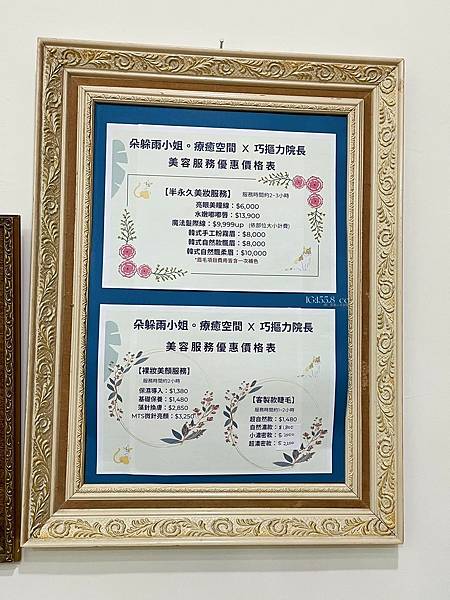 朵躲雨小姐。療癒空間 X 巧摳力院長
美容服務優惠價格表
【半永久美妝服務】 服務時間約2~3小時
亮眼美瞳線：$6,000
水嫩嘟嘟唇：$13,900
魔法髮際線：$9,999up (依部位大小計費)
韓式手工粉霧眉：$8,000
韓式自然款飄眉：$8,000
韓式自然飄柔眉：$10,000
*眉毛項目費用皆含一次補色
朵躲雨小姐。療癒空間 X 巧摳力院長
美容服務優惠價格表
【裸妝美顏服務】
服務時間約2小時
保濕導入：$1,380
基礎保養：$1,480
藻針煥膚：$2,850
MTS微針亮顏：$3,250
【客製款睫毛】
服務時間約1~2小時
超自然款：$1,480
自然濃款：
小濃密款：
超濃密款：